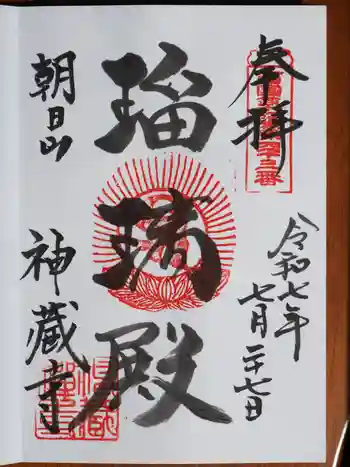 奉拝
令和七年
七月二十七日
瑠璃殿
朝日山
神蔵寺